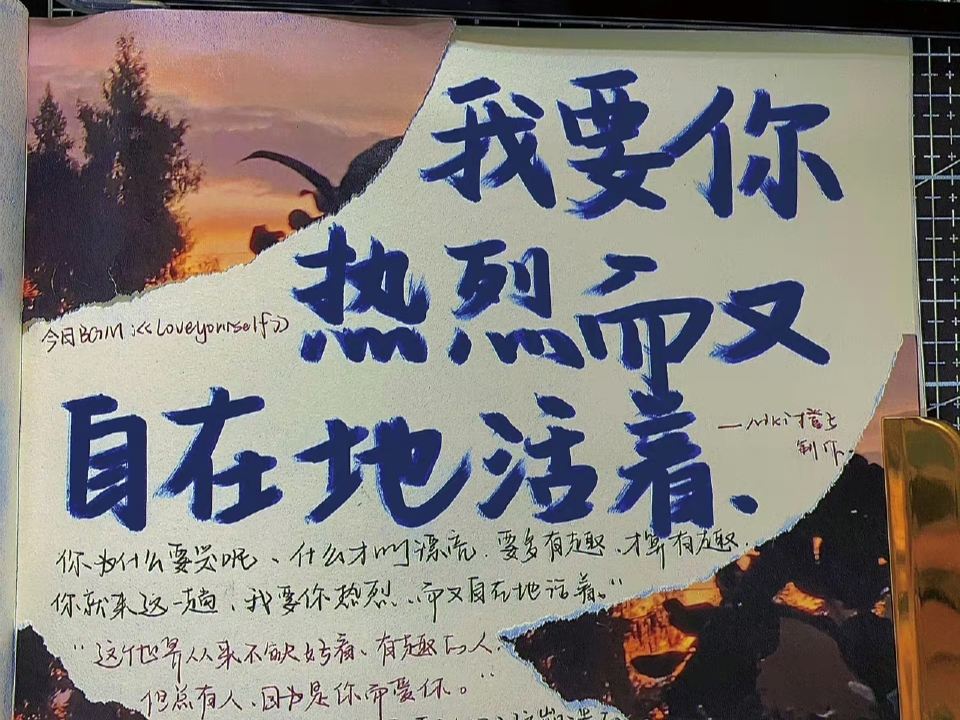 我要你
热烈而又
今日BGM:《Loveyourself》
自在地活着、
—Niki
制作.
你为什么要哭呢、什么才叫漂亮.要多有趣.才算有趣.
你就来这一趟、我要你热烈、而又自在地活着。"
"这个世界从来不缺好看、有趣的人.
但总有人、因为是你而爱你。"